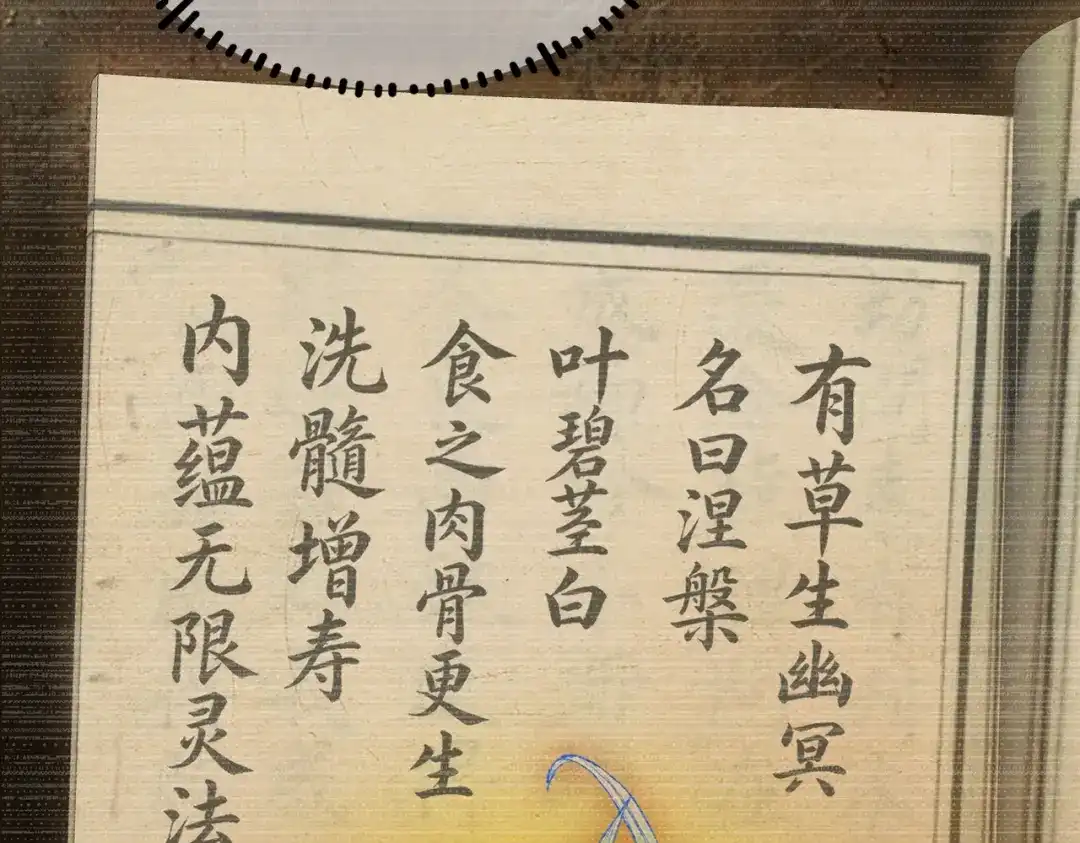 有草生幽冥
名曰涅槃
叶碧茎白
食之肉骨更生
洗髓增寿
内蕴无限灵法